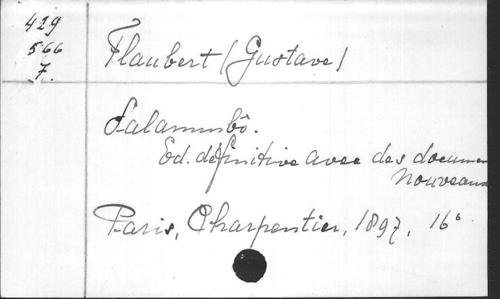 419
566
7.
Flaubert (Gustave)
Salammbô.
Ed. définitive avec des documen
nouveaux
Paris, Charpentier, 1897. 16°